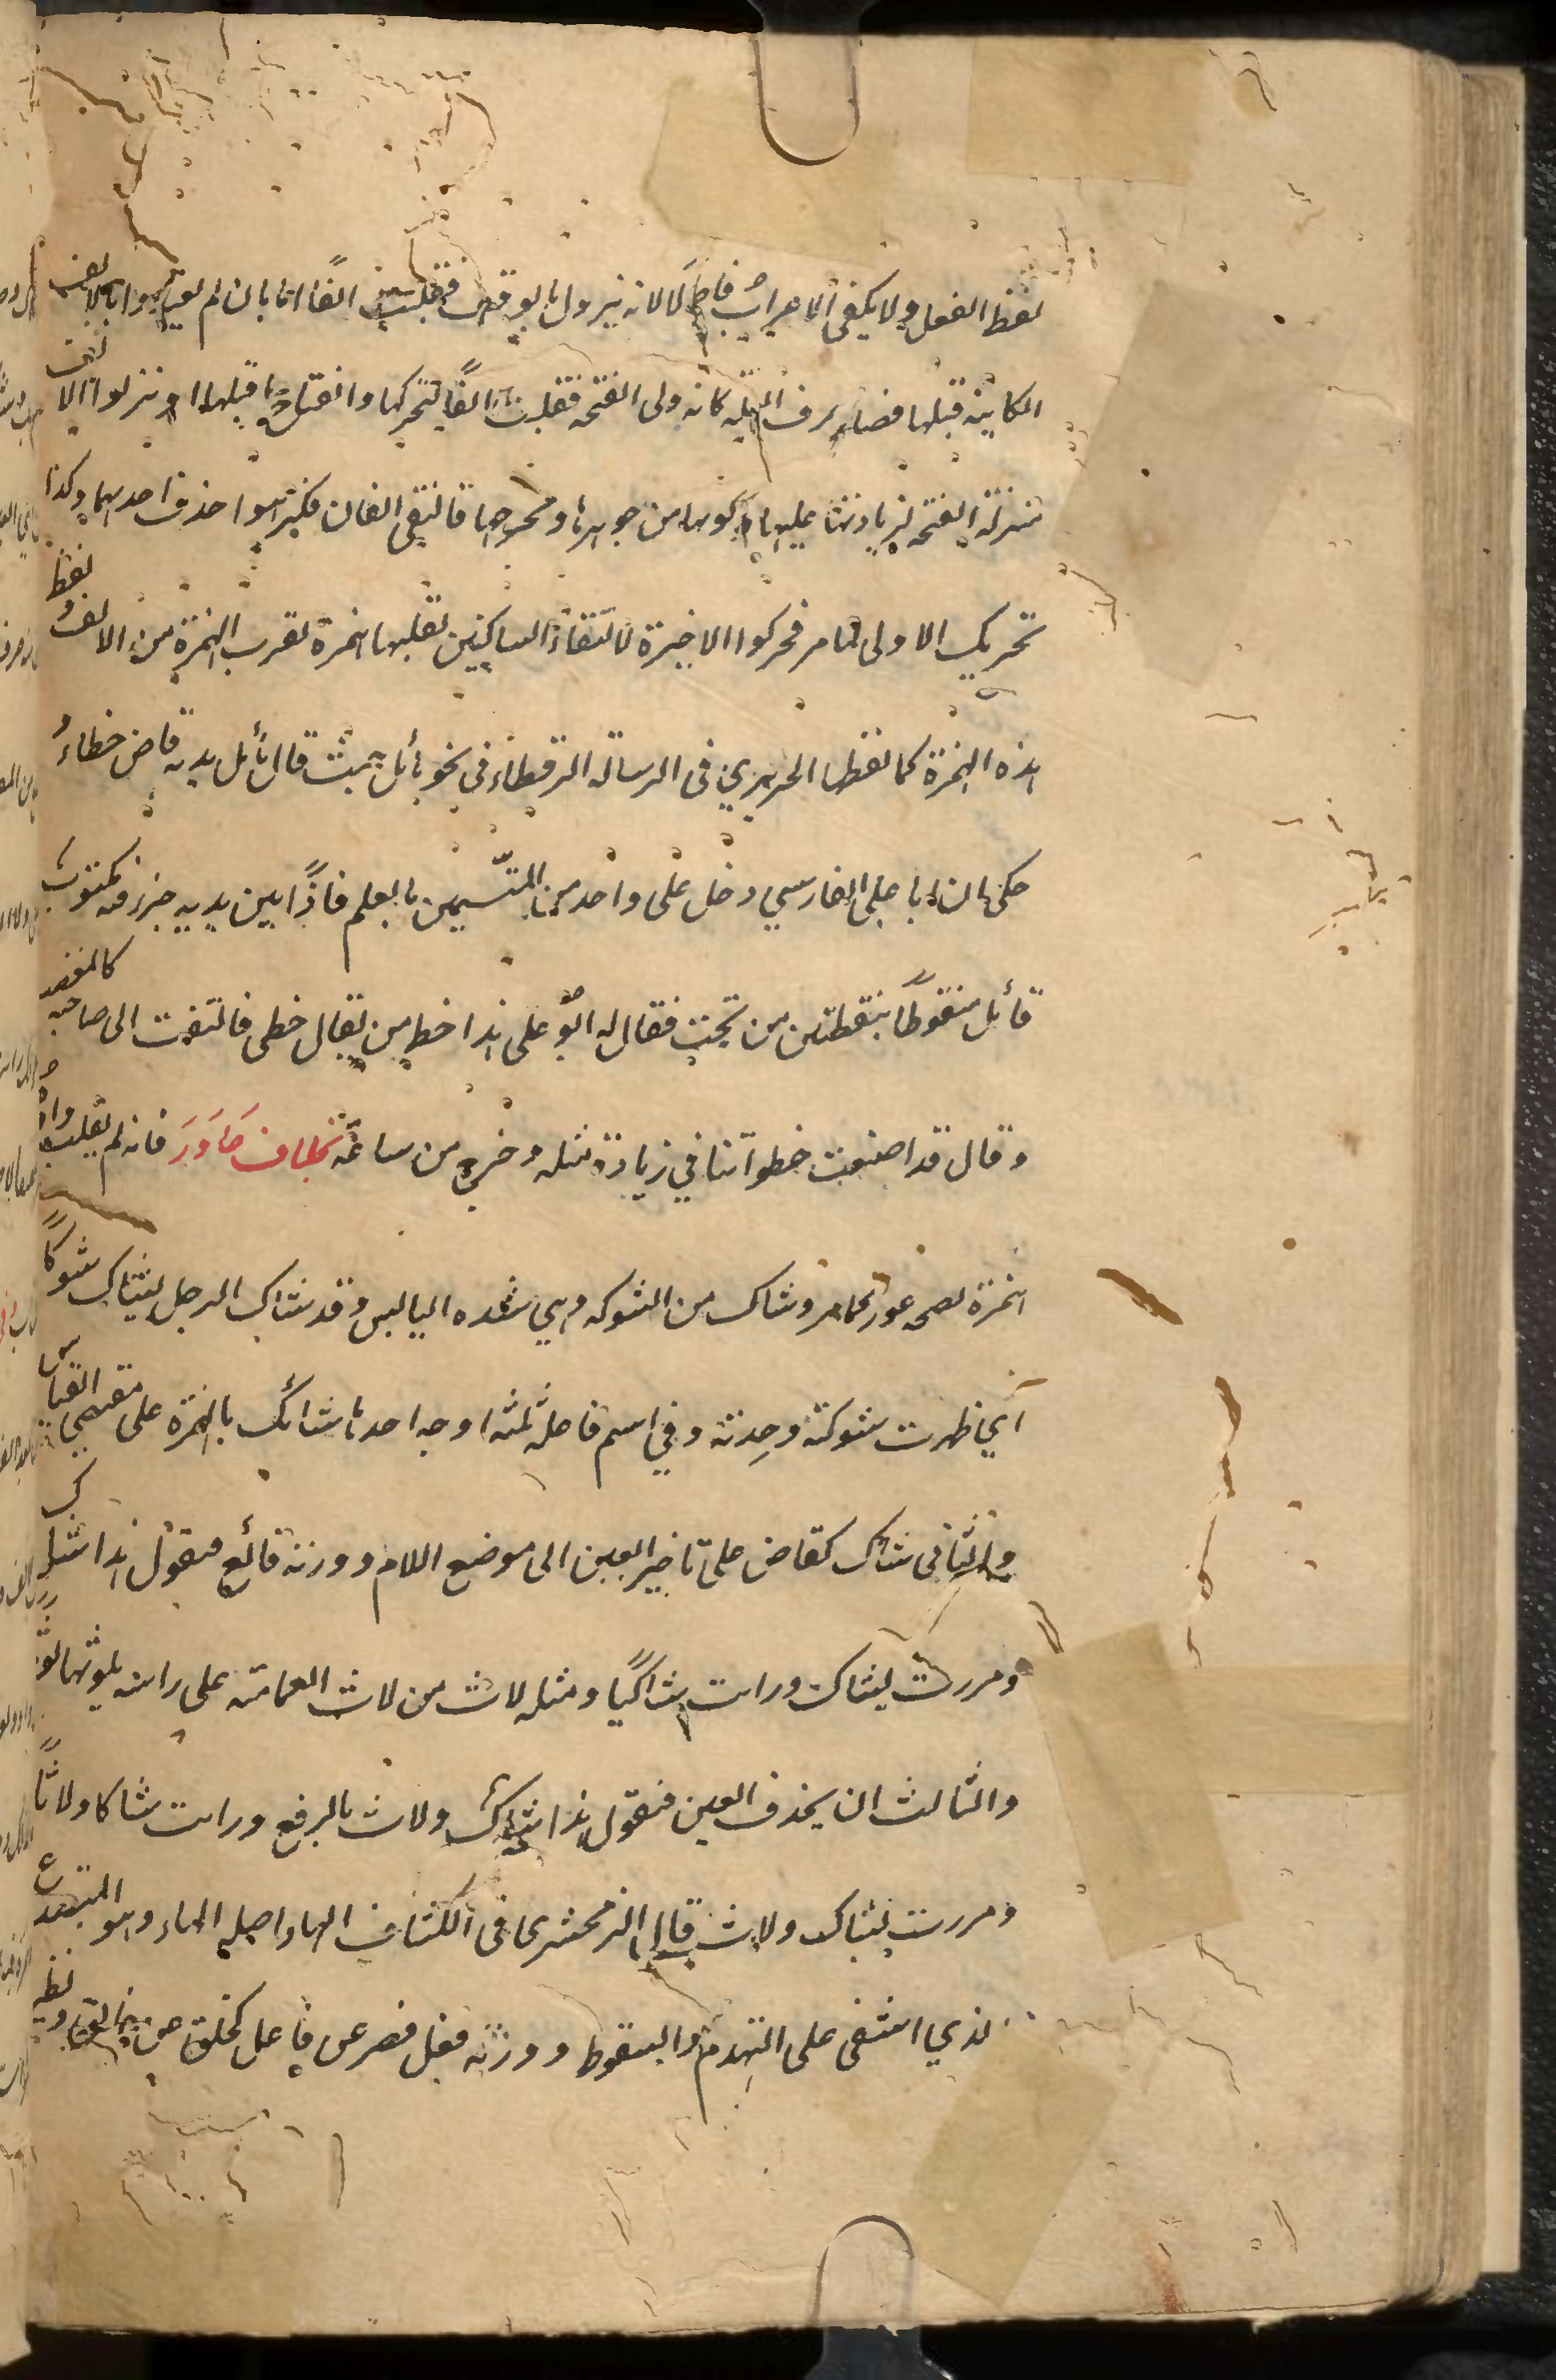 لفظ الفعل ولا يكفى الاعراب فاصلا لانه يزول بالوقف فقلبت الفا اما بان لم يعتبروا بالالف
الكاينة قبلها فصار حرف العلة كانه ولى الفتحة فقلبت الفا لتحركها وانفتاح ما قبلها او نزلوا الالف
منزلة الفتحة لزيادتها عليها وكونها من جوهرها ومخرجها فالتقى الفان فكرهوا حذف احديهما وكذا
تحريك الاولى لما مر فحركوا الاخيرة لالتقاء الساكنين تقلبها همزة لقرب الهمزة من الالف ولفظ
هذه الهمزة كما لفظها الحريري فى الرسالة الرقطاء فى نحو نائل حيث قال نائل يديه فاض خطاءٌ
حكى ان ابا على الفارسي دخل على واحد من المتسمين بالعلم فاذًا بين يديه جزء فيه مكتوب
قائل منقوطًا بنقطتين من تحت فقال له ابو على هذا خط من فقال خطى فالتفت الى صاحبه كالمغضب
وقال قد اضيعت خطواتنا في زيارة مثله وخرج من ساعته بخلاف عاور فانه لم يقلب واوه
همزة لصحة عور كما مر وشاك من الشوكة وهي شدة الباس وقد شاك الرجل يشاك شوكًا
اي ظهرت شوكته وحدته وفي اسم فاعله ثلثة اوجه احدها شائك بالهمزة على مقتضى القياس
والثانى شاك كقاض على تاخير العين الى موضع اللام ووزنه فالع فتقول هذا شاك
ومررت بشاك ورايت شاكيًا ومثله لاث من لاث العمامة على راسه يلوثها لوثا
والثالث ان يحذف العين فتقول هذا شاك ولاث بالرفع ورايت شاكا ولاثًا
ومررت بشاك ولاث قال الزمخشرى فى الكشاف الهار اصله الهاء وهو المتصدع
الذي اشفى على التهدم والسقوط ووزنه فعل قصر عن فاعل كخلف عن خالف ونظيره